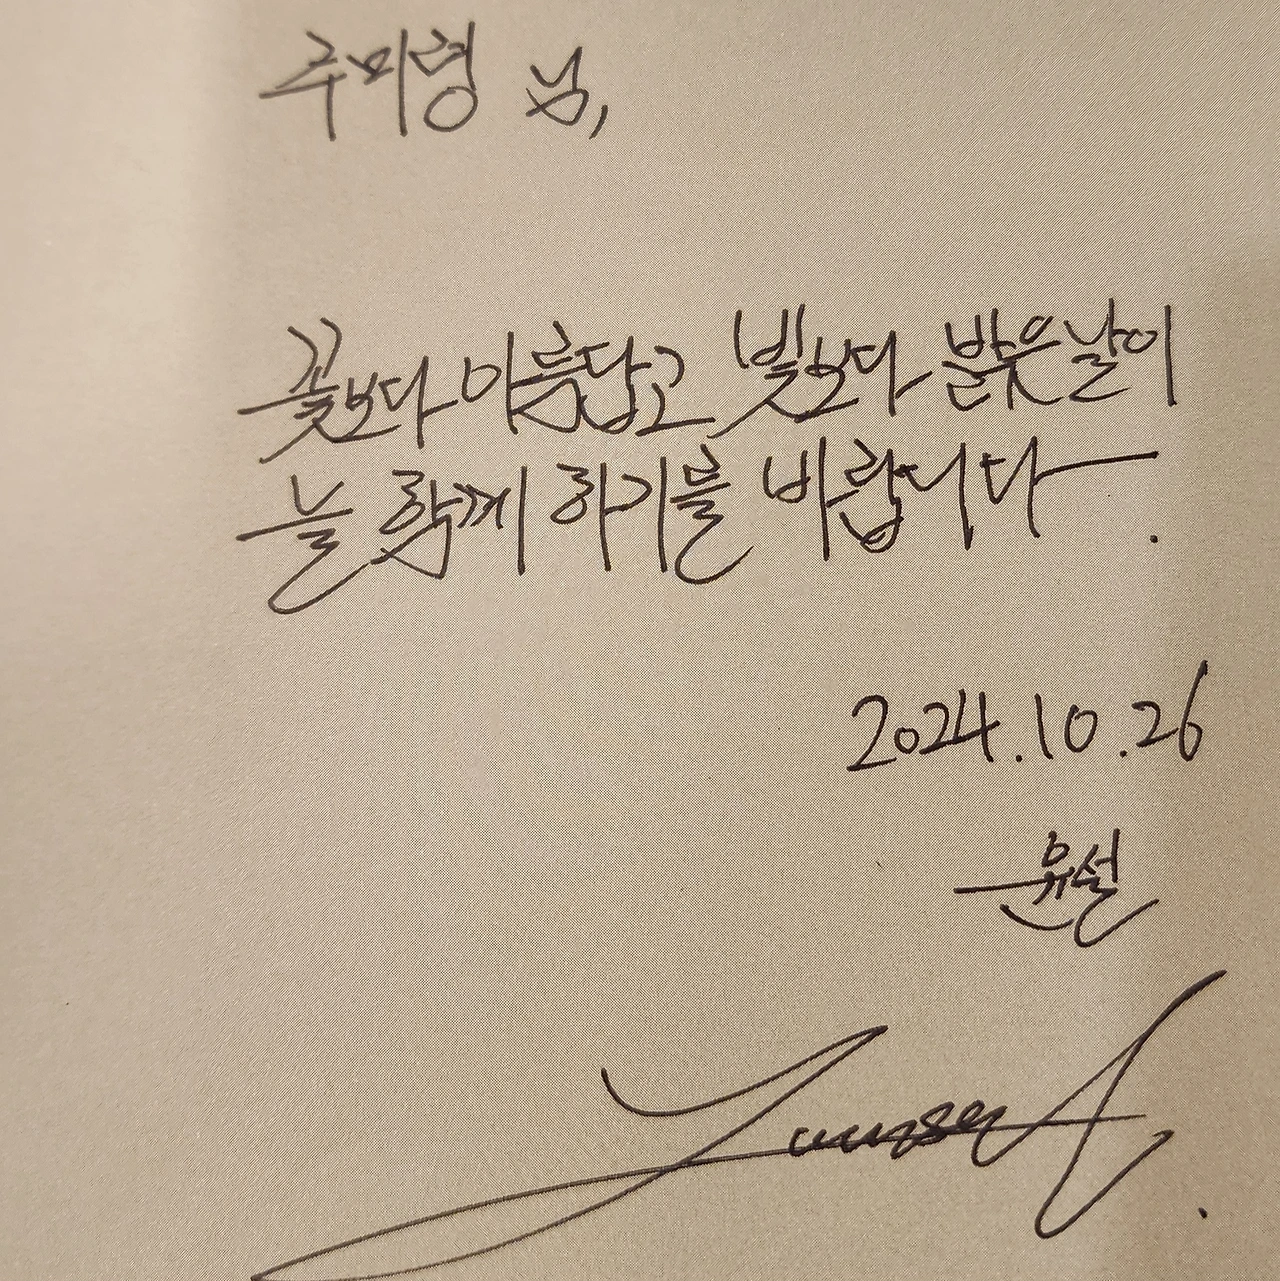 주미령 님,
꽃보다 아름답고 빛보다 밝은 날이
늘 함께 하기를 바랍니다.
2024.10.26
윤설